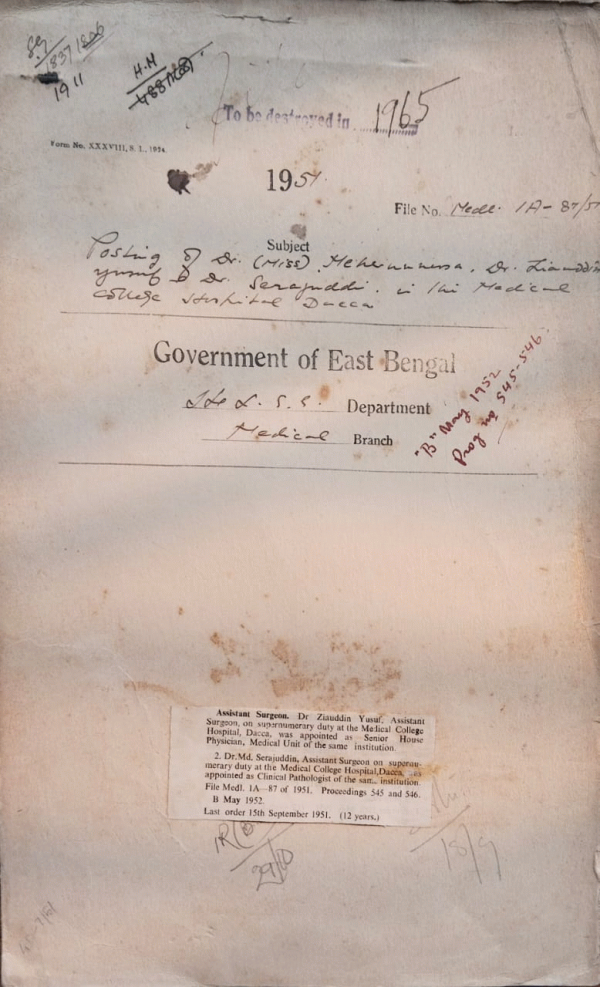 Sg.
1837/1806
1911
H.M
488
To be destroyed in 1965
Form No. XXXVIII, S. I., 1954.
1951.
File No. Medl. 1A-87/51
Subject
Posting of Dr. (Miss) Meherunnessa, Dr. Ziauddin
Yusuf & Dr. Serajuddi. in the Medical
College Hospital Dacca
Government of East Bengal
H & L. S. G. Department
Medical Branch
"B" May 1952
Prog no 545-546.
Assistant Surgeon. Dr Ziauddin Yusuf, Assistant
Surgeon, on supernumerary duty at the Medical College
Hospital, Dacca, was appointed as Senior House
Physician, Medical Unit of the same institution.
2. Dr. Md. Serajuddin, Assistant Surgeon on supernu-
merary duty at the Medical College Hospital, Dacca, was
appointed as Clinical Pathologist of the same institution.
File Medl. 1A—87 of 1951. Proceedings 545 and 546.
B May 1952.
Last order 15th September 1951. (12 years.)
18/9